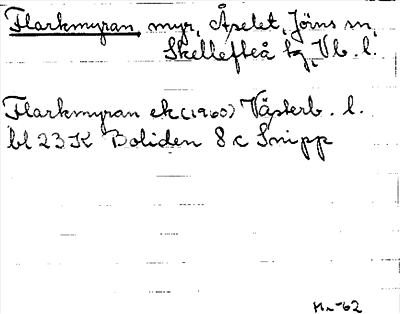 Flarkmyran, myr, Åselet, Jörns sn,
Skellefteå tg, Vb. l.
Flarkmyran ek (1960) Västerb. l.
bl 23 K Boliden 8 c Snipp
Hn -62